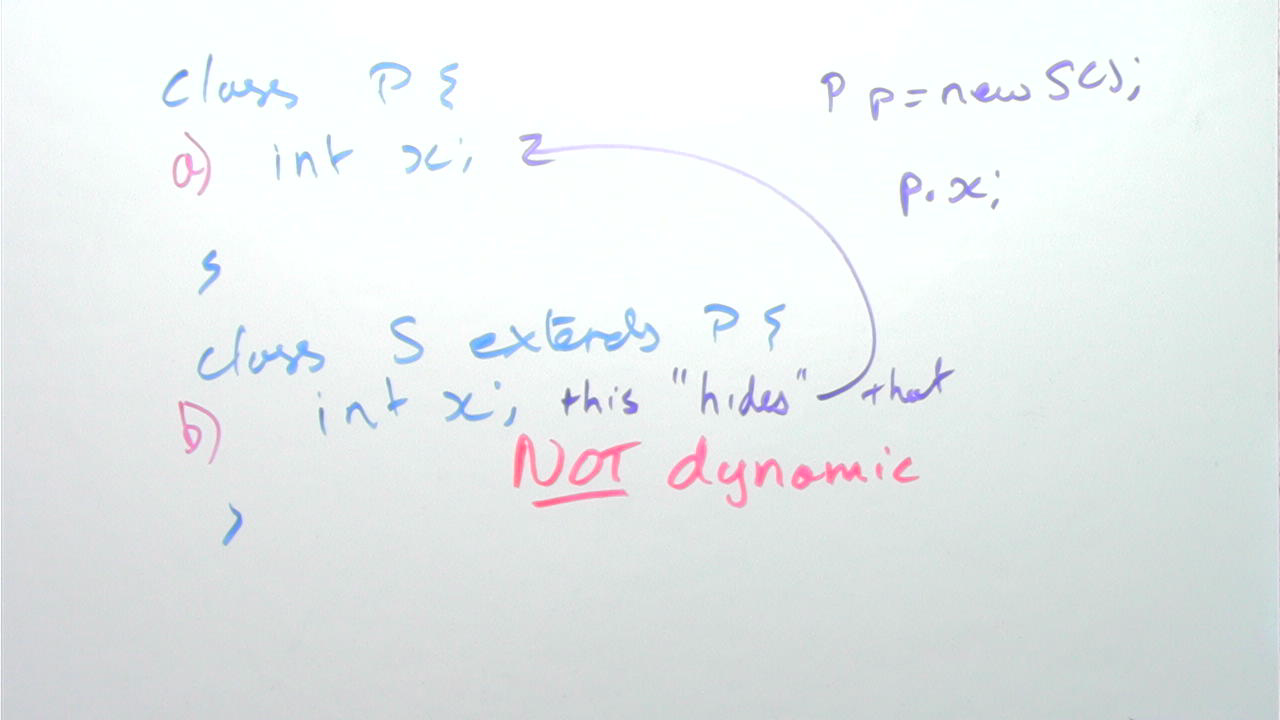 class P {
a) int x;
}
class S extends P {
b) int x; this "hides" that
NOT dynamic
}
P p = new S();
p.x;